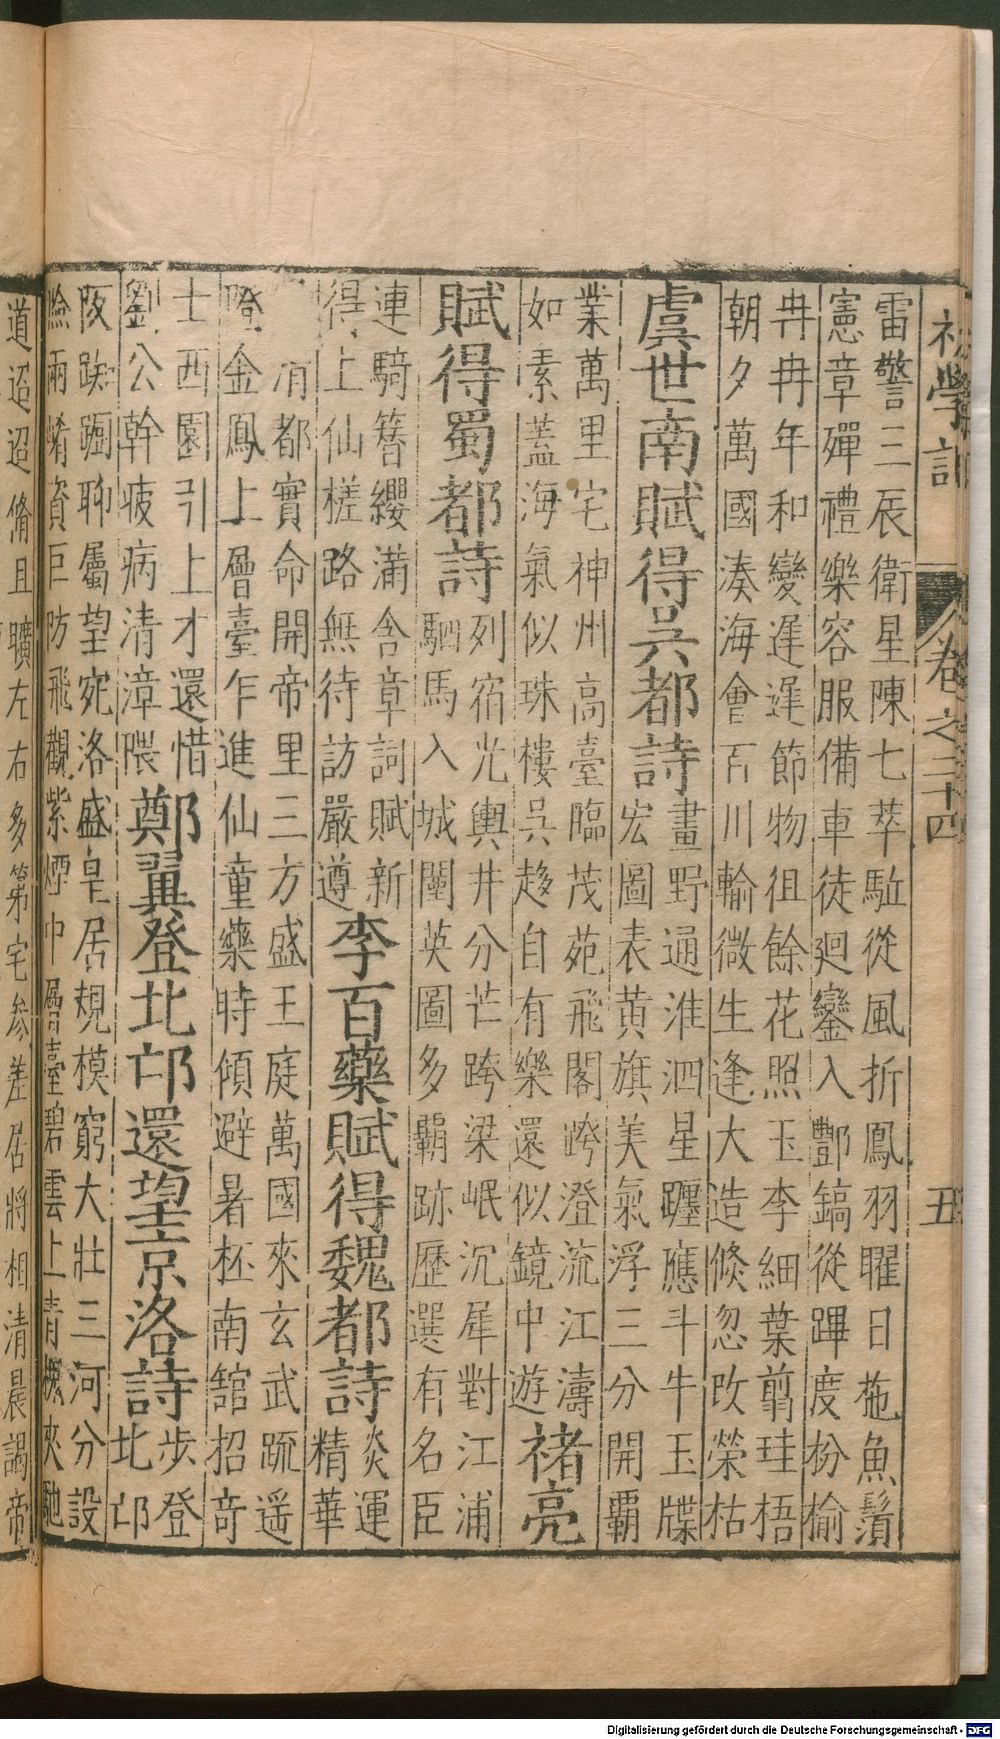 初學記 卷之二十四 五
雷警三辰衛星陳七萃駐從風折鳳羽曜日拖魚鬚
憲章殫禮樂容服備車徒廻鑾入酆鎬從蹕度枌榆
冉冉年和變遲遲節物徂餘花照玉李細葉翦珪梧
朝夕萬國湊海會百川輸微生逢大造倐忽改榮枯
虞世南賦得吳都詩
畫野通淮泗星躔應斗牛玉牒
宏圖表黃旗美氣浮三分開霸
業萬里宅神州高臺臨茂苑飛閣跨澄流江濤
如素蓋海氣似珠樓吳趍自有樂還似鏡中遊
褚亮
賦得蜀都詩
列宿光輿井分芒跨梁岷沉犀對江浦
駟馬入城闉英圖多覇跡歷選有名臣
連騎簪纓滿含章詞賦新
得上仙槎路無待訪嚴遵
李百藥賦得魏都詩
炎運
精華
消都實命開帝里三方盛王庭萬國來玄武疏遥
隥金鳳上層臺乍進仙童藥時傾避暑杯南舘招竒
士西園引上才還惜
劉公幹疲病清漳隈
鄭翼登北邙還望京洛詩
步登
北邙
阪踟躕聊屬望宛洛盛皇居規模窮大壯三河分設
險兩崤資巨防飛觀紫煙中層臺碧雲上青槐夾馳
道迢迢脩且曠左右多第宅參差居將相清晨謁帝
Digitalisierung gefördert durch die Deutsche Forschungsgemeinschaft - DFG